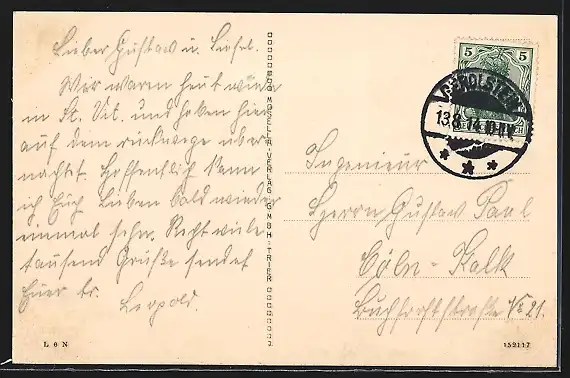 Lieber Gustav u. Liesel.
Wir waren heut wieder
in St. Vit. und haben hier
auf dem rückwege über
nachtet. Hoffentlich kann
ich Euch Lieben bald wieder
einmal sehn. Recht viele
tausend Grüße sendet
Euer tr. Leopold.
MOSELLA-VERLAG GMBH-TRIER
5 5
GEROLSTEIN
13.8.14
Ingenieur
Herrn Gustav Paul
Cöln-Kalk
Buchforststraße No 21.
L 6 N
152117